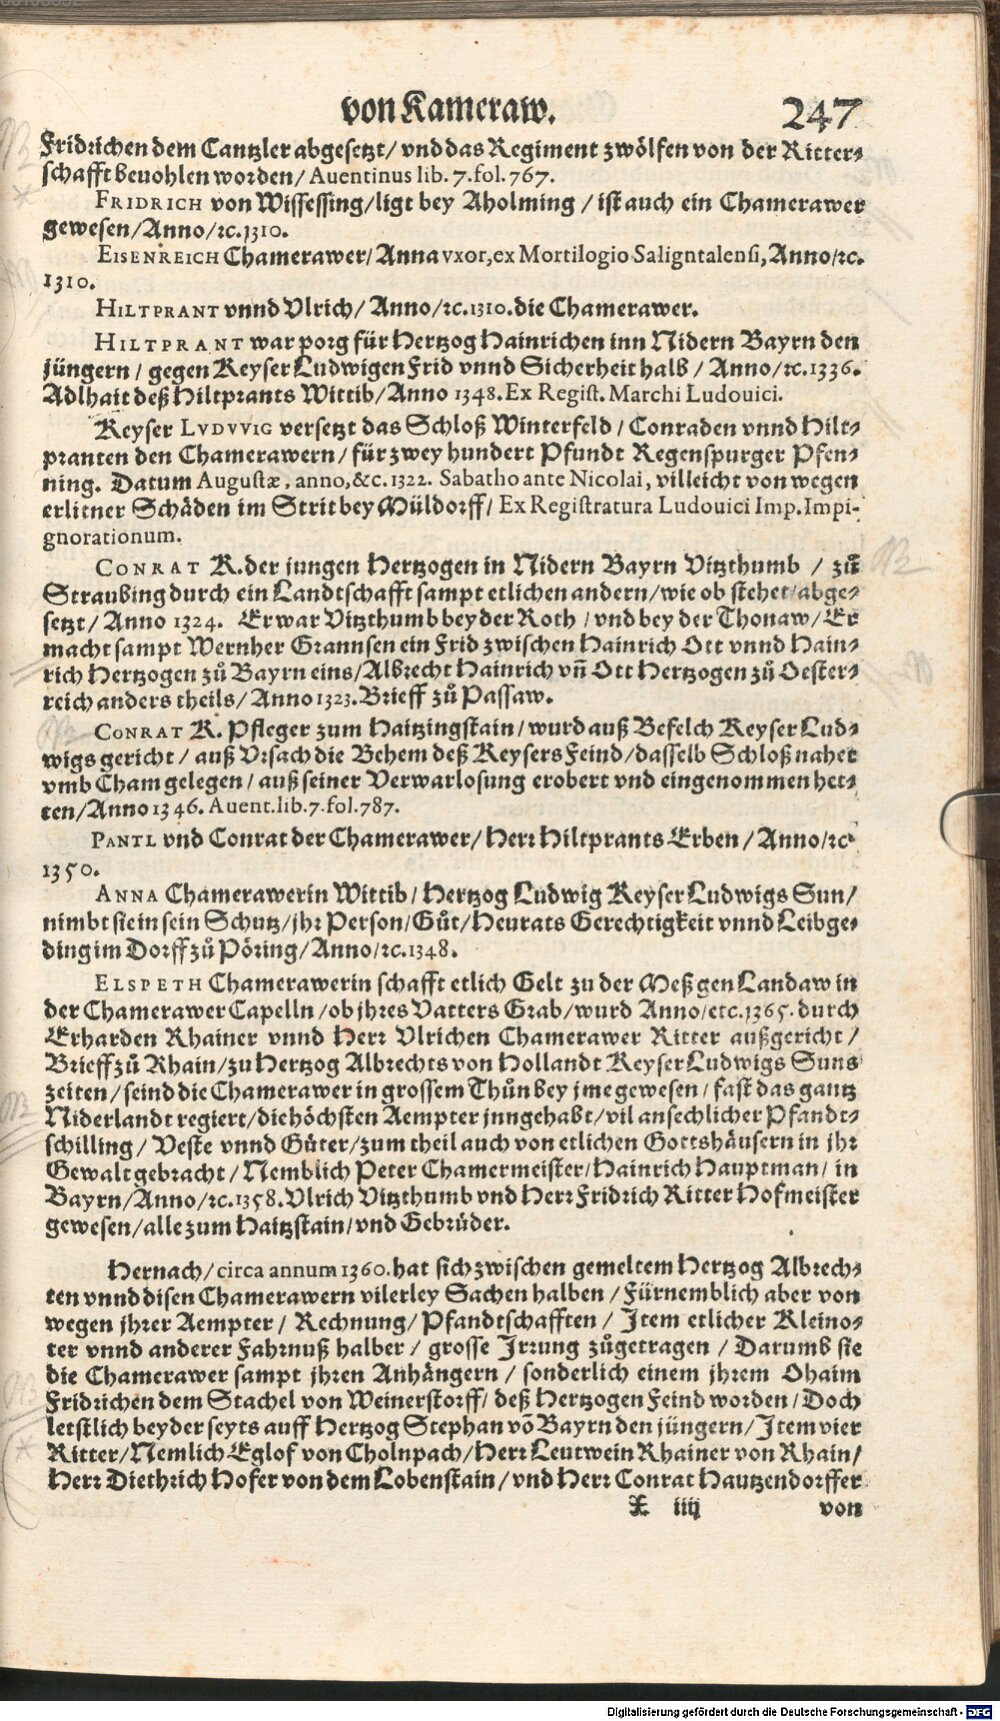 von Kameraw. 247
Fridrichen dem Cantzler abgesetzt/ vnd das Regiment zwölfen von der Ritter-
schafft beuohlen worden/ Auentinus lib. 7. fol. 767.
FRIDRICH von Wissessing/ligt bey Aholming / ist auch ein Chamerawer
gewesen/Anno/ꝛc.1310.
EISENREICH Chamerawer/ Anna vxor, ex Mortilogio Saligntalensi, Anno/ꝛc.
1310.
HILTPRANT vnnd Vlrich/ Anno/ꝛc.1310.die Chamerawer.
HILTPRANT war porg für Hertzog Hainrichen inn Nidern Bayrn den
jüngern / gegen Keyser Ludwigen Frid vnnd Sicherheit halb / Anno/ꝛc.1336.
Adlhait deß Hiltprants Wittib/Anno 1348. Ex Regist. Marchi Ludouici.
Keyser LVDVVIG versetzt das Schloß Winterfeld / Conraden vnnd Hilt-
pranten den Chamerawern / für zwey hundert Pfundt Regenspurger Pfen-
ning. Datum Augustæ, anno,&c. 1322. Sabatho ante Nicolai, villeicht von wegen
erlitner Schäden im Strit bey Müldorff/ Ex Registratura Ludouici Imp. Impi-
gnorationum.
CONRAT K. der jungen Hertzogen in Nidern Bayrn Vitzthumb / zů
Straubing durch ein Landtschafft sampt etlichen andern/wie ob stehet/abge-
setzt/ Anno 1324. Er war Vitzthumb bey der Roth / vnd bey der Thonaw/ Er
macht sampt Wernher Grannsen ein Frid zwischen Hainrich Ott vnnd Hain-
rich Hertzogen zů Bayrn eins/Albrecht Hainrich vñ Ott Hertzogen zů Oester-
reich anders theils/ Anno 1323. Brieff zů Passaw.
CONRAT K. Pfleger zum Haitzingstain/ wurd auß Befelch Keyser Lud-
wigs gericht / auß Vrsach die Behem deß Keysers Feind/dasselb Schloß nahet
vmb Cham gelegen / auß seiner Verwarlosung erobert vnd eingenommen het-
ten/Anno 1346. Auent. lib. 7. fol. 787.
PANTL vnd Conrat der Chamerawer/ Herr Hiltprants Erben/ Anno/ꝛc.
1350.
ANNA Chamerawerin Wittib/ Hertzog Ludwig Keyser Ludwigs Sun/
nimbt sie in sein Schutz/jhr Person/Gůt/Heurats Gerechtigkeit vnnd Leibge-
ding im Dorff zů Pöring/Anno/ꝛc.1348.
ELSPETH Chamerawerin schafft etlich Gelt zu der Meß gen Landaw in
der Chamerawer Capelln/ob jhres Vatters Grab/wurd Anno/etc.1365. durch
Erharden Rhainer vnnd Herr Vlrichen Chamerawer Ritter außgericht /
Brieff zů Rhain/zu Hertzog Albrechts von Hollandt Keyser Ludwigs Suns
zeiten/ seind die Chamerawer in grossem Thůn bey jme gewesen/ fast das gantz
Niderlandt regiert/die höchsten Aempter jnngehabt/vil ansechlicher Pfandt-
schilling/ Veste vnnd Güter/zum theil auch von etlichen Gottshäusern in jhr
Gewalt gebracht/ Nemblich Peter Chamermeister/Hainrich Hauptman/ in
Bayrn/Anno/ꝛc.1358. Vlrich Vitzthumb vnd Herr Fridrich Ritter Hofmeister
gewesen/alle zum Haitzstain/vnd Gebrüder.
Hernach/circa annum 1360. hat sich zwischen gemeltem Hertzog Albrech-
ten vnnd disen Chamerawern vilerley Sachen halben / Fürnemblich aber von
wegen jhrer Aempter/ Rechnung/ Pfandtschafften / Item etlicher Kleino-
ter vnnd anderer Fahrnuß halber / grosse Irrung zůgetragen / Darumb sie
die Chamerawer sampt jhren Anhängern / sonderlich einem jhrem Ohaim
Fridrichen dem Stachel von Weinerstorff/ deß Hertzogen Feind worden/ Doch
letstlich beyder seyts auff Hertzog Stephan võ Bayrn den jüngern/ Item vier
Ritter/Nemlich Eglof von Cholnpach/Herr Leutwein Rhainer von Rhain/
Herr Diethrich Hofer von dem Lobenstain/ vnd Herr Conrat Hautzendorffer
X iiij von
Digitalisierung gefördert durch die Deutsche Forschungsgemeinschaft - DFG